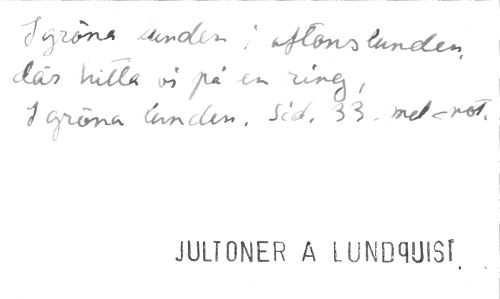 I gröna lunden i aftonslunden,
där hitta vi på en ring,
I gröna lunden. Sid. 33. mel-not.
JULTONER A LUNDQUIST.